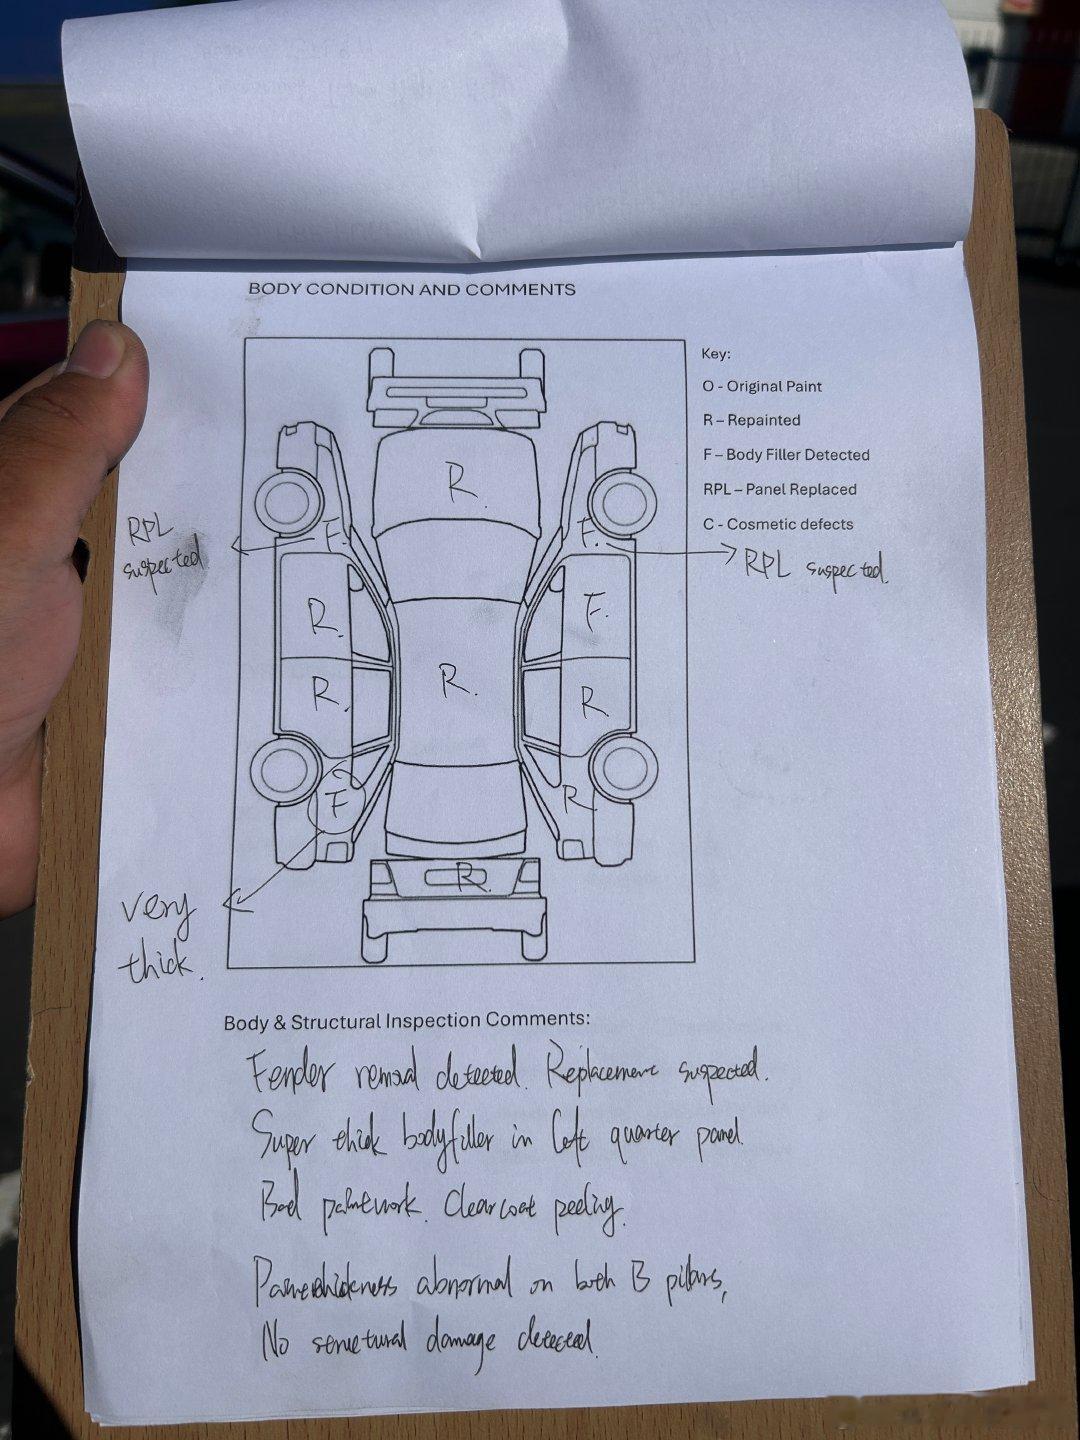 BODY CONDITION AND COMMENTS
Key:
O - Original Paint
R – Repainted
F – Body Filler Detected
RPL – Panel Replaced
C - Cosmetic defects
R
RPL
suspected
F.
F.
RPL suspected.
R.
F.
R.
R.
R
F
R
R.
very
thick.
Body & Structural Inspection Comments:
Fender removal detected. Replacement suspected.
Super thick bodyfiller in left quarter panel.
Bad paintwork. Clearcoat peeling.
Paint thickness abnormal on both B pillars,
No structural damage detected.